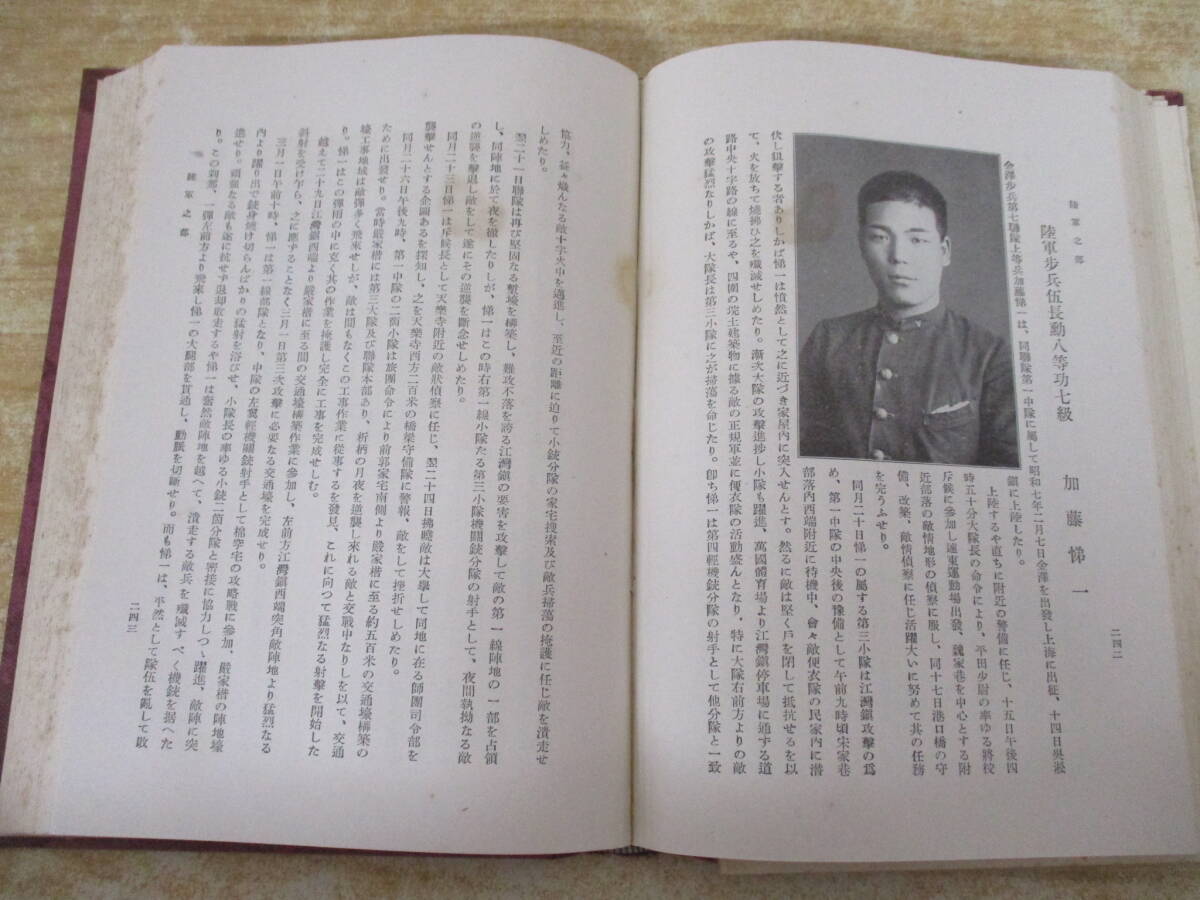 陸軍之部
二四二
陸軍步兵伍長勳八等功七級　加藤悌一
金澤步兵第七聯隊上等兵加藤悌一は、同聯隊第一中隊に屬して昭和七年二月七日金澤を出發し上海に出征、十四日吳淞
鎭に上陸したり。
上陸するや直ちに附近の警備に任じ、十五日午後四
時五十分大隊長の命令により、平田少尉の率ゆる將校
斥候に參加し遠東運動場出發、魏家巷を中心とする附
近部落の敵情地形の偵察に服し、同十七日港口橋の守
備、改築、敵情偵察に任じ活躍大いに努めて其の任務
を完うふせり。
同月二十日悌一の屬する第三小隊は江灣鎭攻擊の爲
め、第一中隊の中央後の豫備として午前九時頃宋家巷
部落內西端附近に待機中、會々敵便衣隊の民家內に潜
伏し狙擊する者ありしかば悌一は憤然として之に近づき家屋內に突入せんとす。然るに敵は堅く戶を閉して抵抗せるを以
て、火を放ちて燒拂ひ之を殲滅せしめたり。漸次大隊の攻擊進捗し小隊も躍進、萬國體育場より江灣鎭停車場に通ずる道
路中央十字路の線に至るや、四圍の堆土建築物に據る敵の正規軍並に便衣隊の活動盛んとなり、特に大隊右前方よりの敵
の攻擊猛烈なりしかば、大隊長は第三小隊に之が掃蕩を命じたり。卽ち悌一は第四輕機銃分隊の射手として他分隊と一致
協力、益々熾んなる敵十字火中を邁進し、至近の距離に迫りて小銃分隊の家宅搜索及び敵兵掃蕩の掩護に任じ敵を潰走せ
しめたり。
翌二十一日聯隊は再び堅固なる塹壕を構築し、難攻不落を誇る江灣鎭の要害を攻擊して敵の第一線陣地の一部を占領
し、同陣地に於て夜を徹したりしが、悌一はこの時右第一線小隊たる第三小隊機關銃分隊の射手として、夜間執拗なる敵
の逆襲を擊退し敵をして遂にその逆襲を斷念せしめたり。
同月二十三日悌一は斥候長として天樂寺附近の敵狀偵察に任じ、翌二十四日拂曉敵は大擧して同地に在る師團司令部を
襲擊せんとする企圖あるを探知し、之を天樂寺西方二百米の橋梁守備隊に警報、敵をして挫折せしめたり。
同月二十六日午後九時、第一中隊の二箇小隊は旅團命令により前郭家宅南側より嚴家楷に至る約五百米の交通壕構築の
ために出發せり。當時嚴家楷には第三大隊及び聯隊本部あり、折柄の月夜を逆襲し來れる敵と交戰中なりしを以て、交通
壕工事地域は敵彈多く飛來せしが、敵は間もなくこの工事作業に從事するを發見、これに向つて猛烈なる射擊を開始した
り。悌一はこの彈雨の中に克く其の作業を掩護し完全に工事を完成せしむ。
越えて二十九日江灣鎭西端より嚴家楷に至る間の交通壕構築作業に參加し、左前方江灣鎭西端突角敵陣地より猛烈なる
斜射を受け乍ら、之に應ずることなく三月一日第三次攻擊に必要なる交通壕を完成せり。
三月一日午前十時、悌一は第一線部隊となり、中隊の左翼輕機關銃射手として楊家宅の攻略戰に參加、嚴家楷の陣地壕
內より躍り出で銃身燒け切らんばかりの猛射を浴びせ、小隊長の率ゆる小銃二箇分隊と密接に協力しつゝ躍進、敵陣に突
進せり。頑强なる敵も遂に抗せず退却敗走するや悌一は奮然敵陣地を越へて、潰走する敵兵を殲滅すべく機銃を据へた
り。この刹那、一彈左前方より飛來し悌一の大腿部を貫通し、動脈を切斷せり。而も悌一は、平然として隊伍を亂して敗
陸軍之部
二四三